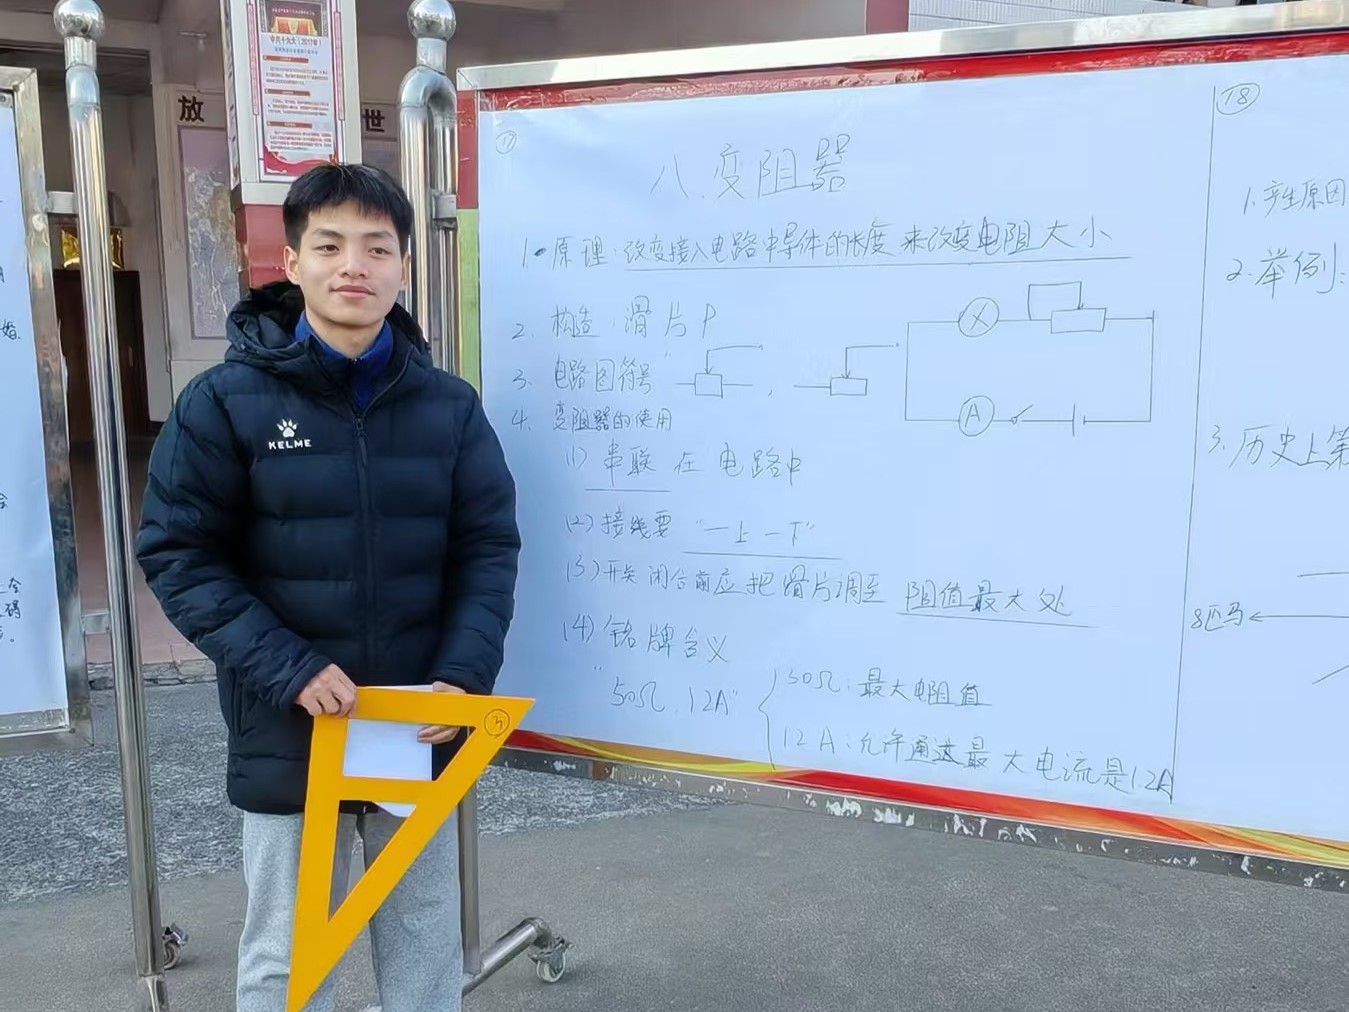 中共十九大（2017年）
放
世
KELME
3
17
八、变阻器
1. 原理：改变接入电路中导体的长度来改变电阻大小
2. 构造：滑片P
3. 电路图符号
,
4. 变阻器的使用
(1) 串联在电路中
(2) 接线要“一上一下”
(3) 开关闭合前应把滑片调至 阻值最大处
(4) 铭牌含义
“50Ω，1.2A”
50Ω：最大电阻值
1.2A：允许通过最大电流是1.2A
X
A
18
1. 产生原因
2. 举例：
3. 历史上第
8匹马